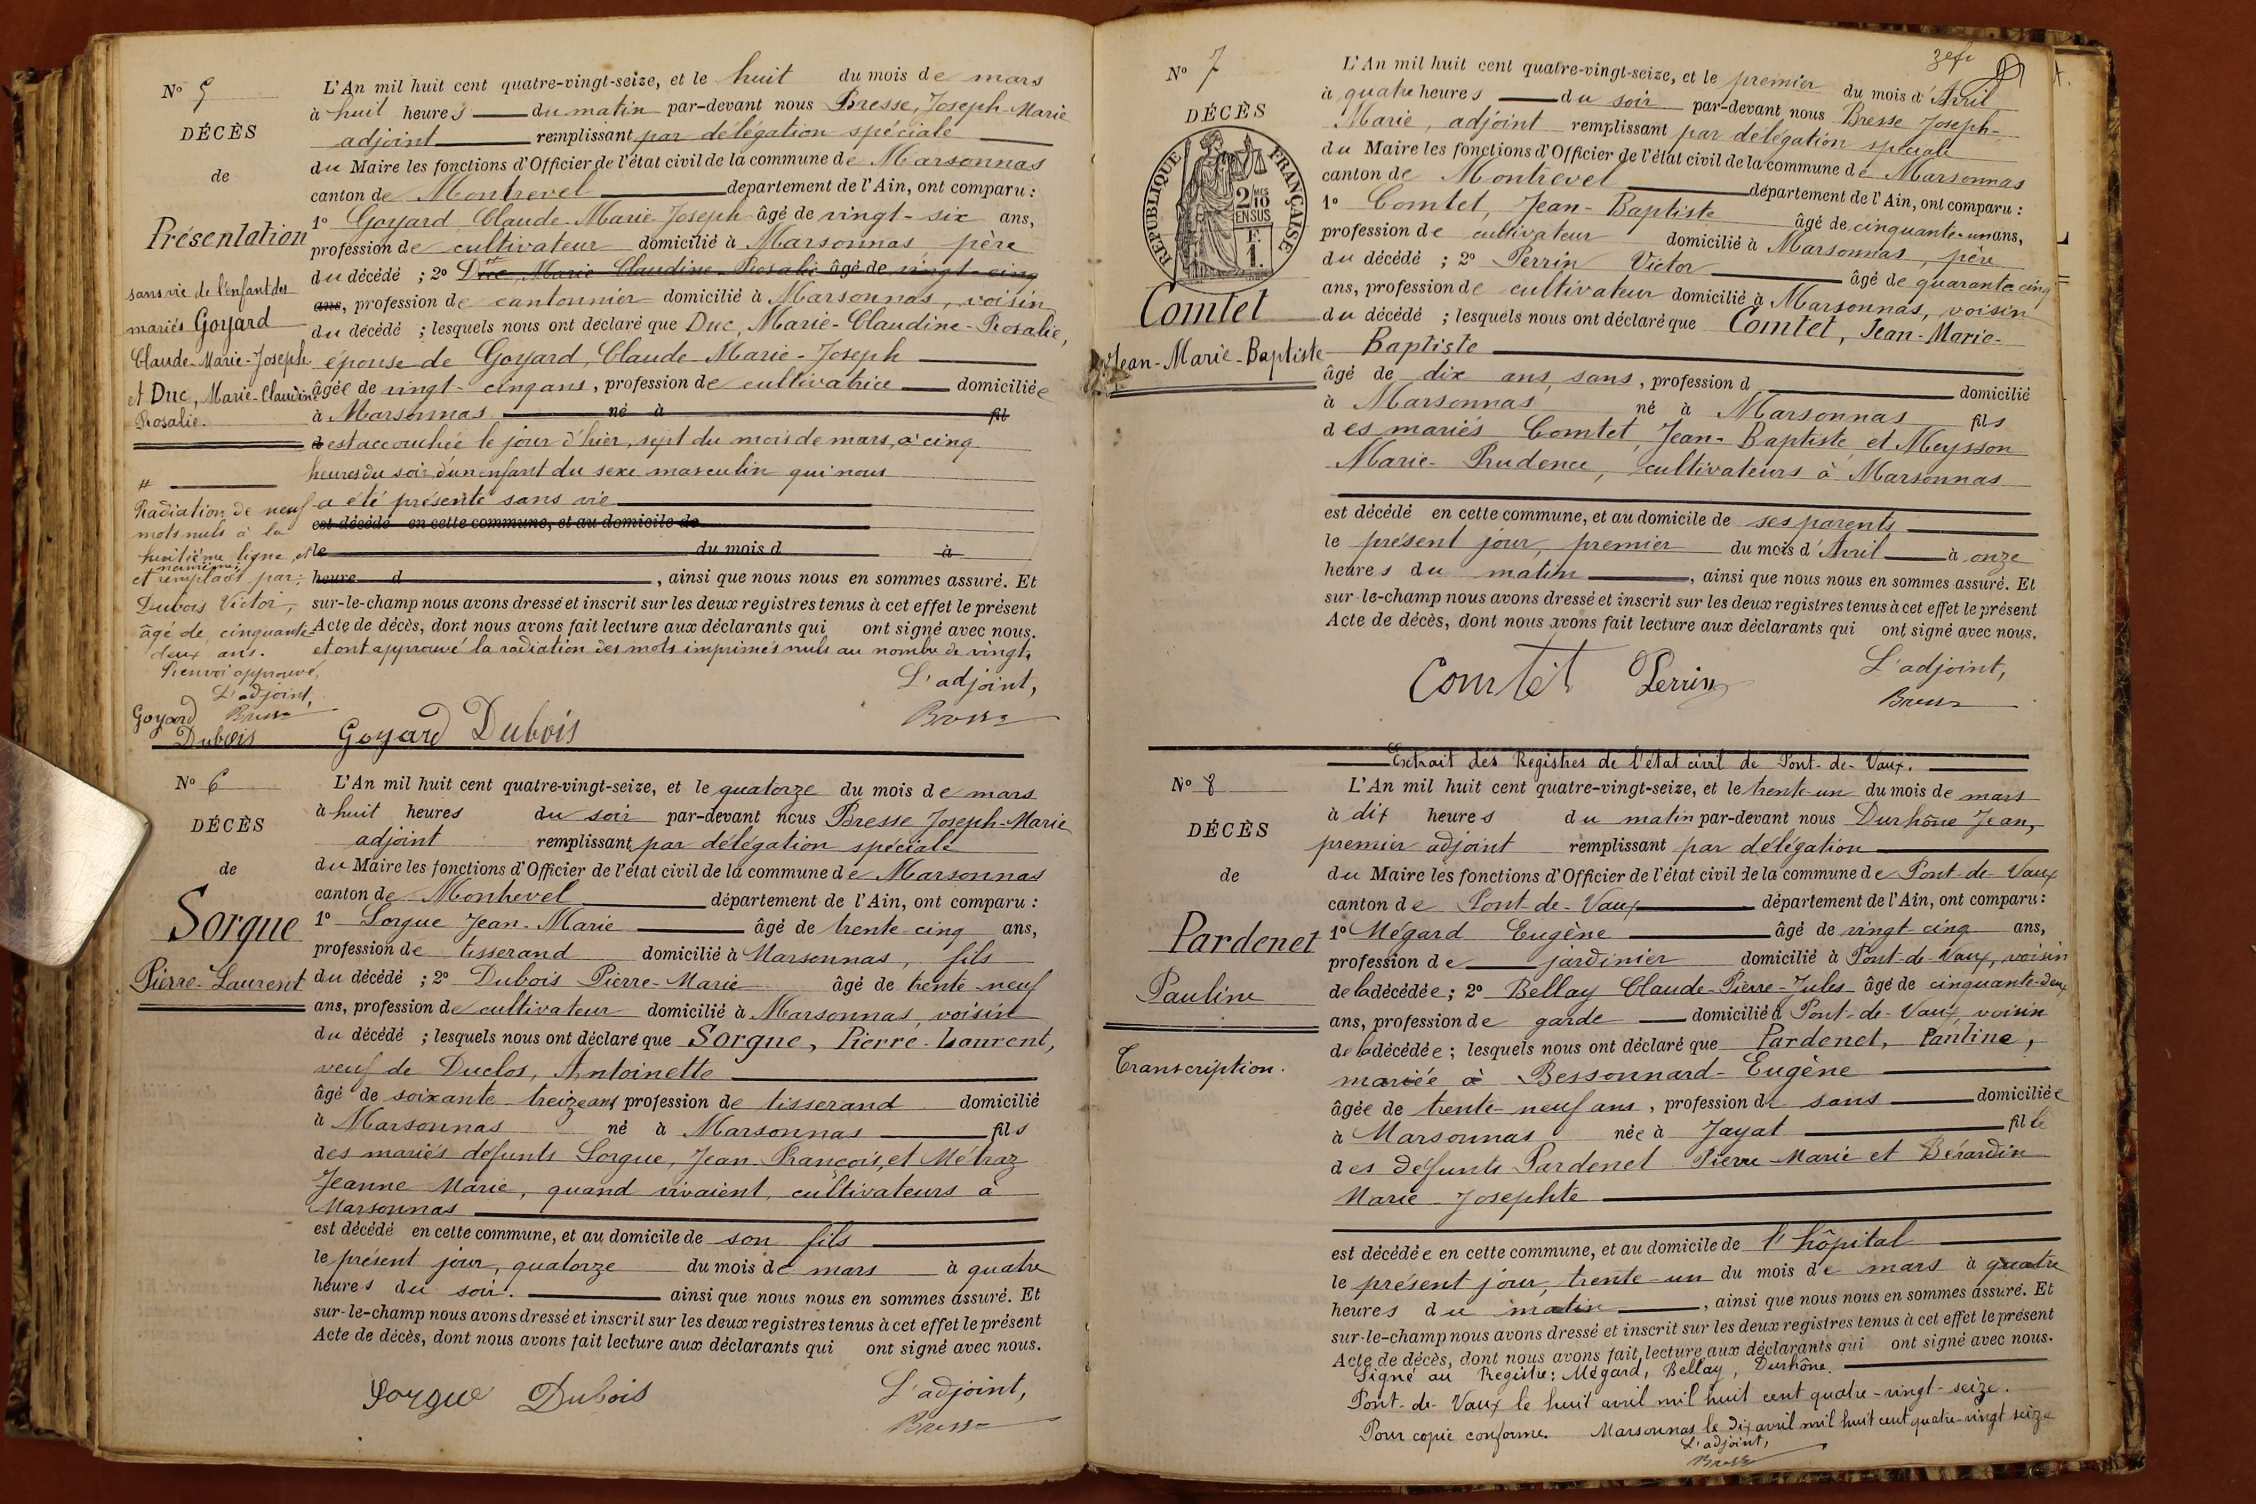 No 5
DÉCÈS
de
Présentation
sans vie de l'enfant des
mariés Goyard
Claude-Marie-Joseph
et Duc, Marie-Claudine
Rosalie.
#
Radiation de neuf
mots nuls à la
huitième ligne, et
neuvième
et remplacés par:
Dubois Victor,
âgé de cinquante-
deux ans.
Renvoi approuvé,
L'adjoint,
Goyard Bresse
Dubois
L'An mil huit cent quatre-vingt-seize, et le huit du mois de mars
à huit heures du matin par-devant nous Bresse, Joseph-Marie
adjoint remplissant par délégation spéciale
du Maire les fonctions d'Officier de l'état civil de la commune de Marsonnas
canton de Montrevel département de l'Ain, ont comparu :
1° Goyard Claude-Marie-Joseph âgé de vingt-six ans,
profession de cultivateur domicilié à Marsonnas père
du décédé ; 2° Duc, Marie-Claudine-Rosalie âgé de vingt-cinq
ans, profession de cantonnier domicilié à Marsonnas, voisin
du décédé ; lesquels nous ont déclaré que Duc, Marie-Claudine-Rosalie,
épouse de Goyard, Claude-Marie-Joseph
âgée de vingt-cinq ans, profession de cultivatrice domiciliée
à Marsonnas né à fil
d est accouchée le jour d'hier, sept du mois de mars, à cinq
heures du soir d'un enfant du sexe masculin qui nous
a été présenté sans vie
est décédé en cette commune, et au domicile de
le du mois d à
heure d , ainsi que nous nous en sommes assuré. Et
sur-le-champ nous avons dressé et inscrit sur les deux registres tenus à cet effet le présent
Acte de décès, dont nous avons fait lecture aux déclarants qui ont signé avec nous.
et ont approuvé la radiation des mots imprimés nuls au nombre de vingt.
L'adjoint,
Goyard Dubois Bresse
No 6
DÉCÈS
de
Sorgue
Pierre-Laurent
L'An mil huit cent quatre-vingt-seize, et le quatorze du mois de mars
à huit heures du soir par-devant nous Bresse Joseph-Marie
adjoint remplissant par délégation spéciale
du Maire les fonctions d'Officier de l'état civil de la commune de Marsonnas
canton de Montrevel département de l'Ain, ont comparu :
1° Sorgue Jean-Marie âgé de trente cinq ans,
profession de tisserand domicilié à Marsonnas, fils
du décédé ; 2° Dubois Pierre-Marie âgé de trente-neuf
ans, profession de cultivateur domicilié à Marsonnas, voisin
du décédé ; lesquels nous ont déclaré que Sorgue, Pierre-Laurent,
veuf de Duclos, Antoinette
âgé de soixante-treize ans profession de tisserand domicilié
à Marsonnas né à Marsonnas fils
des mariés défunts Sorgue, Jean-François, et Métraz
Jeanne Marie, quand vivaient, cultivateurs à
Marsonnas
est décédé en cette commune, et au domicile de son fils
le présent jour, quatorze du mois de mars à quatre
heures du soir. ainsi que nous nous en sommes assuré. Et
sur-le-champ nous avons dressé et inscrit sur les deux registres tenus à cet effet le présent
Acte de décès, dont nous avons fait lecture aux déclarants qui ont signé avec nous.
L'adjoint,
Sorgue Dubois Bresse
No 7
DÉCÈS
RÉPUBLIQUE FRANÇAISE
2/10 EN SUS
F. 1.
Comtet
Jean-Marie-Baptiste
L'An mil huit cent quatre-vingt-seize, et le premier du mois d'Avril
à quatre heures du soir par-devant nous Bresse Joseph-
Marie, adjoint remplissant par délégation spéciale
du Maire les fonctions d'Officier de l'état civil de la commune de Marsonnas
canton de Montrevel département de l'Ain, ont comparu :
1° Comtet, Jean-Baptiste âgé de cinquante-un ans,
profession de cultivateur domicilié à Marsonnas, père
du décédé ; 2° Perrin Victor âgé de quarante cinq
ans, profession de cultivateur domicilié à Marsonnas, voisin
du décédé ; lesquels nous ont déclaré que Comtet, Jean-Marie-
Baptiste
âgé de dix ans, sans, profession d domicilié
à Marsonnas né à Marsonnas fils
des mariés Comtet, Jean-Baptiste, et Meysson
Marie-Prudence, cultivateurs à Marsonnas
est décédé en cette commune, et au domicile de ses parents
le présent jour, premier du mois d'Avril à onze
heures du matin , ainsi que nous nous en sommes assuré. Et
sur-le-champ nous avons dressé et inscrit sur les deux registres tenus à cet effet le présent
Acte de décès, dont nous avons fait lecture aux déclarants qui ont signé avec nous.
L'adjoint,
Comtet Perrin Bresse
Extrait des Registres de l'état civil de Pont-de-Vaux.
No 8
DÉCÈS
de
Pardenet
Pauline
Transcription.
L'An mil huit cent quatre-vingt-seize, et le trente-un du mois de mars
à dix heures du matin par-devant nous Durhône Jean,
premier adjoint remplissant par délégation
du Maire les fonctions d'Officier de l'état civil de la commune de Pont-de-Vaux
canton de Pont-de-Vaux département de l'Ain, ont comparu :
1° Mégard Eugène âgé de vingt-cinq ans,
profession de jardinier domicilié à Pont-de-Vaux, voisin
de la décédée ; 2° Bellay Claude-Pierre-Jules âgé de cinquante-deux
ans, profession de garde domicilié à Pont-de-Vaux, voisin
de la décédée ; lesquels nous ont déclaré que Pardenet, Pauline,
mariée à Bessonnard-Eugène
âgée de trente-neuf ans, profession de sans domiciliée
à Marsonnas née à Jayat fille
des défunts Pardenet Pierre-Marie et Bérardin
Marie-Josephte
est décédée en cette commune, et au domicile de l'hôpital
le présent jour, trente-un du mois de mars à quatre
heures du matin , ainsi que nous nous en sommes assuré. Et
sur-le-champ nous avons dressé et inscrit sur les deux registres tenus à cet effet le présent
Acte de décès, dont nous avons fait lecture aux déclarants qui ont signé avec nous.
Signé au Registre : Mégard, Bellay, Durhône.
Pont-de-Vaux le huit avril mil huit cent quatre-vingt-seize.
Pour copie conforme. Marsonnas le dix avril mil huit cent quatre-vingt seize
L'adjoint,
Bresse